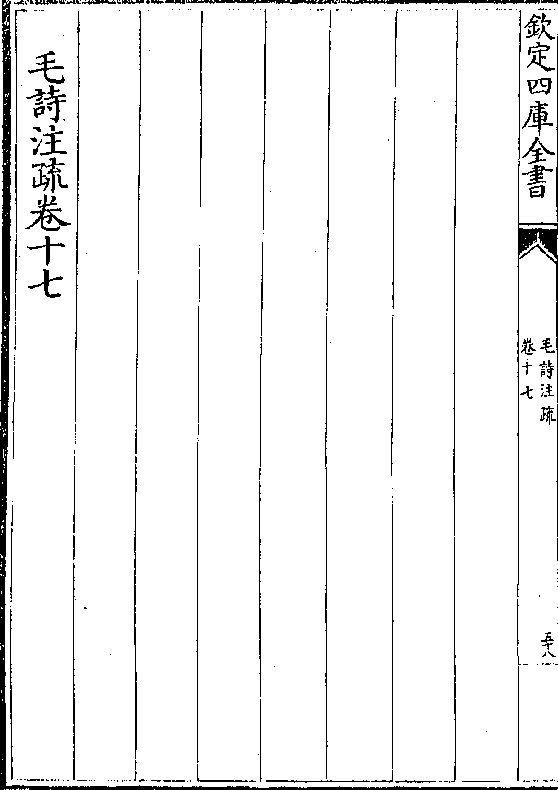 欽定四庫全書
毛詩注疏
卷十七
五十八
毛詩注疏卷十七